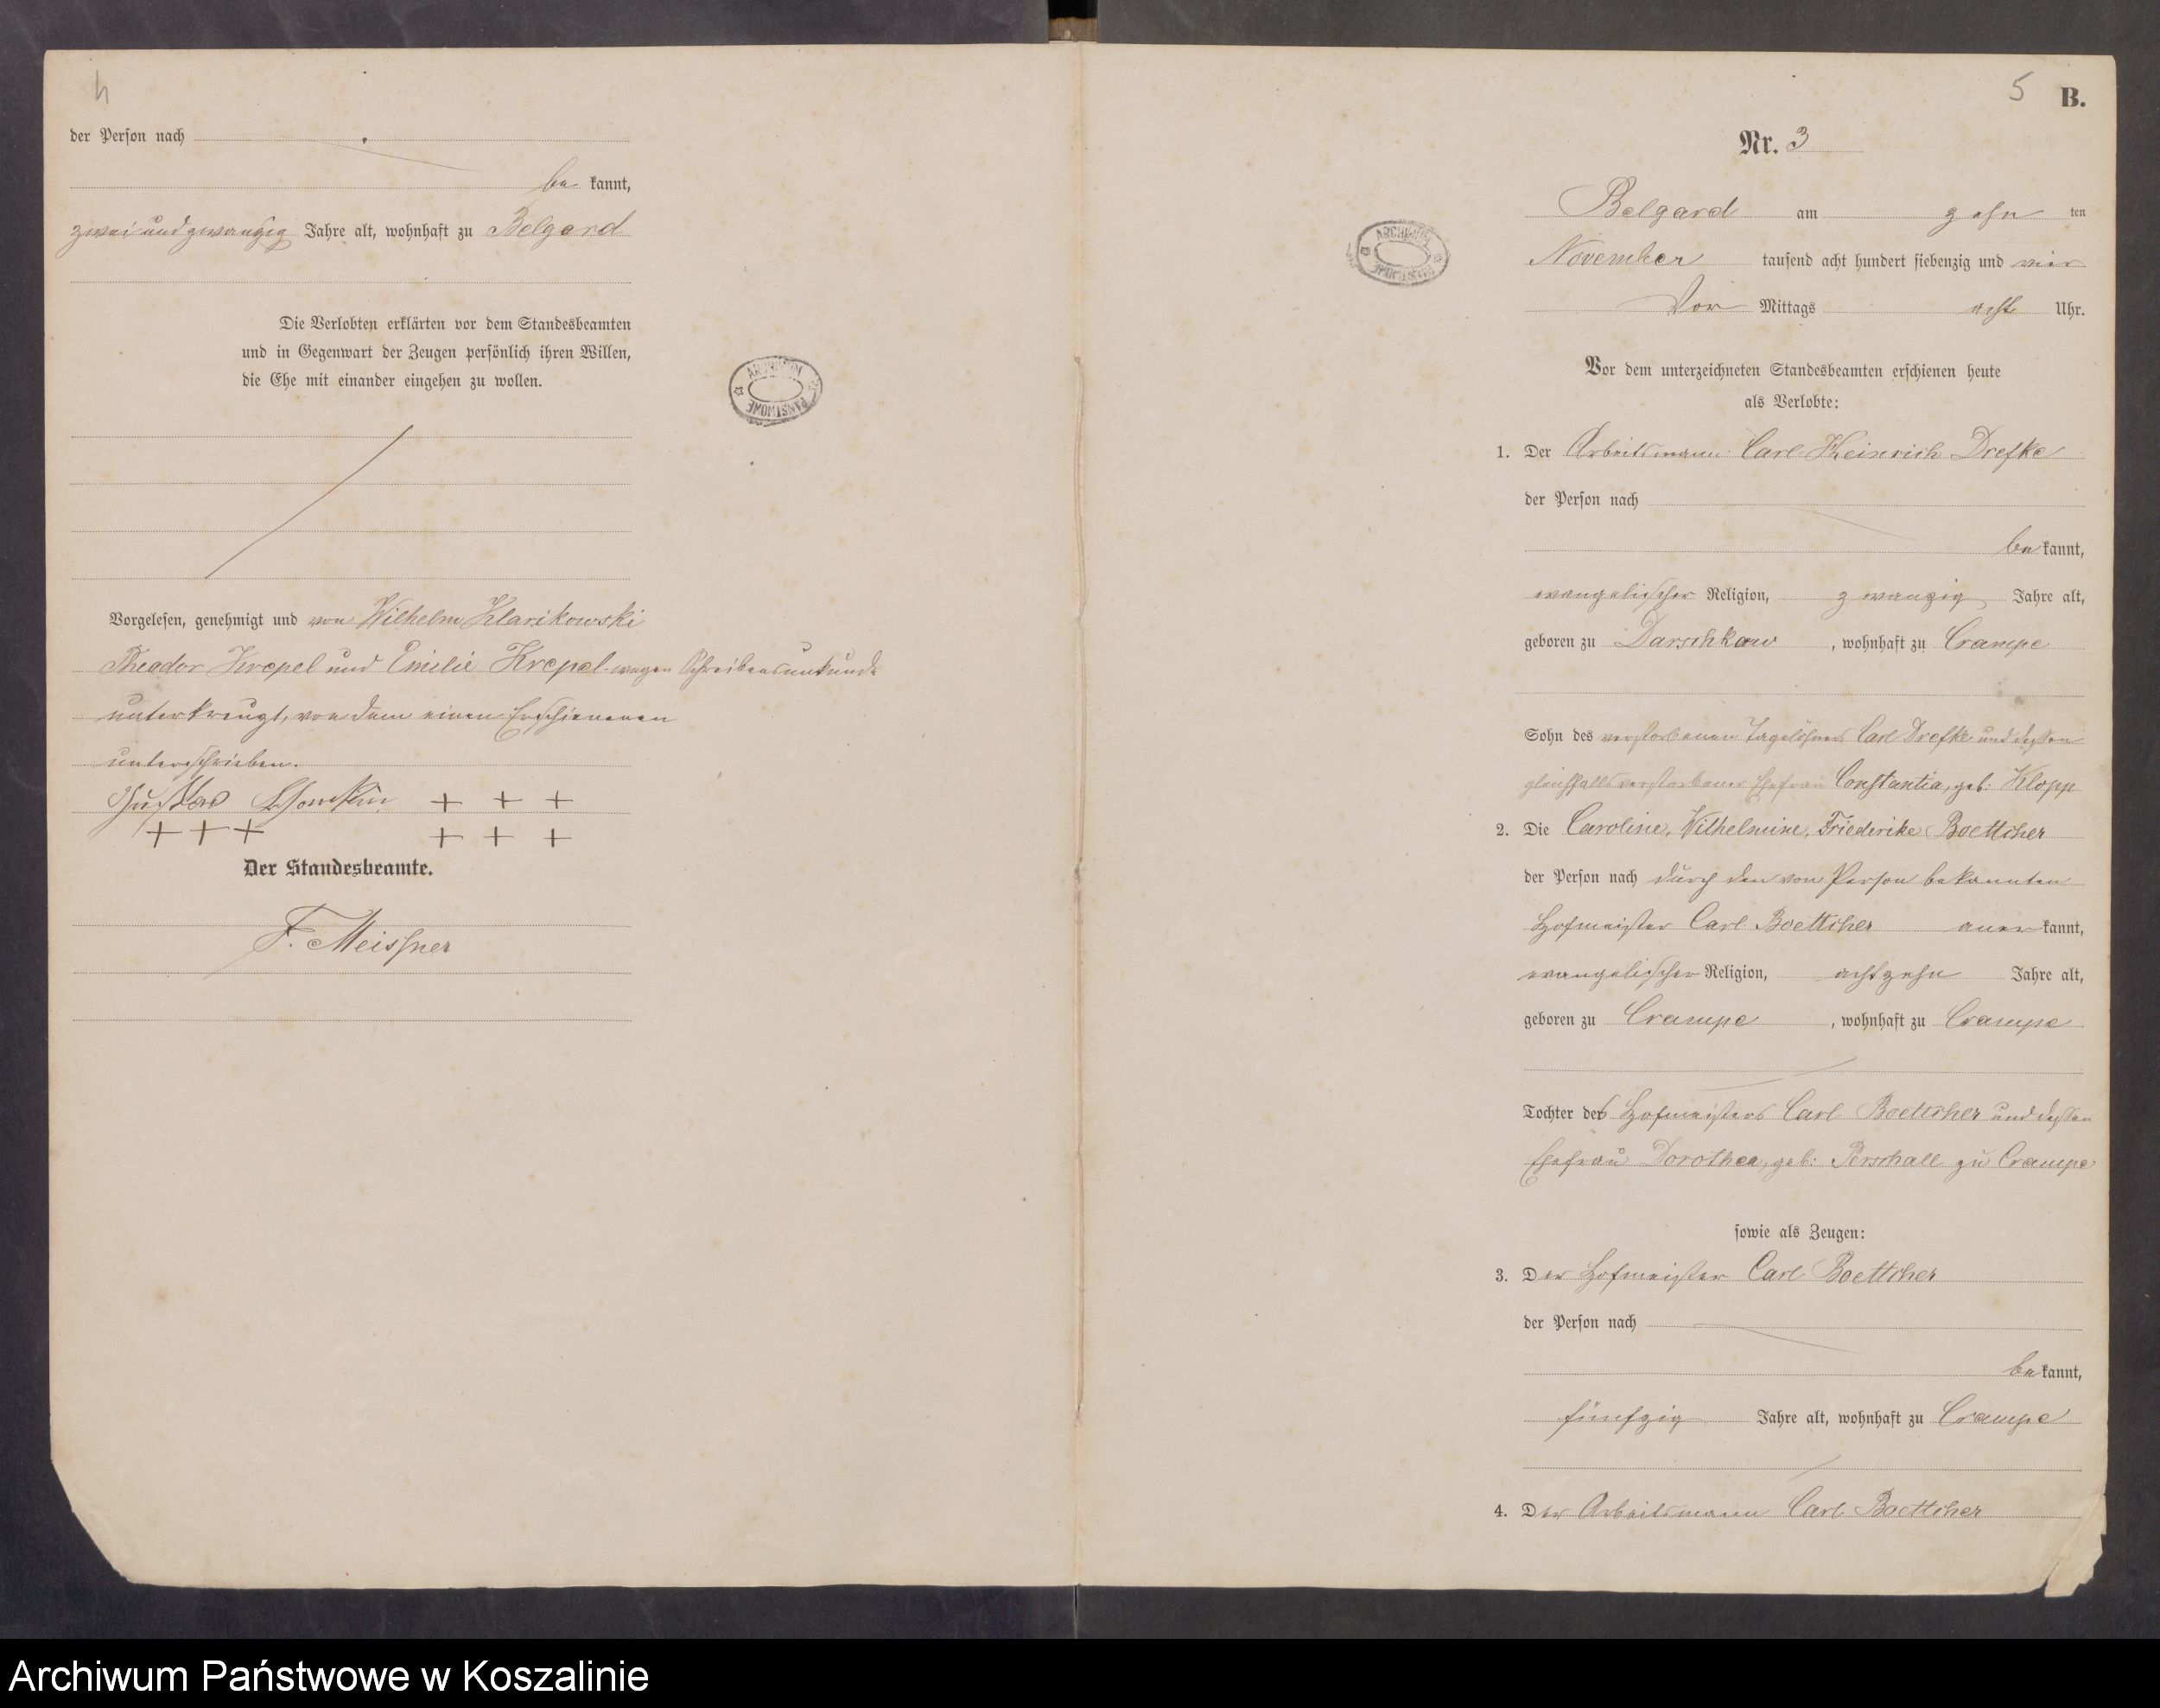 4
der Person nach
be kannt,
zwei und zwanzig Jahre alt, wohnhaft zu Belgard
Die Verlobten erklärten vor dem Standesbeamten
und in Gegenwart der Zeugen persönlich ihren Willen,
die Ehe mit einander eingehen zu wollen.
Vorgelesen, genehmigt und von Wilhelm Klarikowski
Theodor Krepel und Emilie Krepel wegen Schreibensunkunde
unterkreuzt, von dem einen Erschienenen
unterschrieben.
Gustav + + +
+ + + + + +
Der Standesbeamte.
F. Meissner
ARCHIWUM PAŃSTWOWE
5 B.
Nr. 3
Belgard am zehn ten
November tausend acht hundert siebenzig und vier
Vor Mittags acht Uhr.
ARCHIWUM PAŃSTWOWE
Vor dem unterzeichneten Standesbeamten erschienen heute
als Verlobte:
1. Der Arbeitsmann Carl Heinrich Drefke
der Person nach
be kannt,
evangelischer Religion, zwanzig Jahre alt,
geboren zu Darschkow, wohnhaft zu Crampe
Sohn des verstorbenen Tagelöhners Carl Drefke und dessen
gleichfalls verstorbener Ehefrau Constantia, geb: Klopp
2. Die Caroline, Wilhelmine, Friederike Boettcher
der Person nach durch den von Person bekannten
Hofmeister Carl Boettcher aner kannt,
evangelischer Religion, achtzehn Jahre alt,
geboren zu Crampe, wohnhaft zu Crampe
Tochter des Hofmeisters Carl Boettcher und dessen
Ehefrau Dorothea, geb: Perschall zu Crampe
sowie als Zeugen:
3. Der Hofmeister Carl Boettcher
der Person nach
be kannt,
fünfzig Jahre alt, wohnhaft zu Crampe
4. Der Arbeitsmann Carl Boettcher
Archiwum Państwowe w Koszalinie